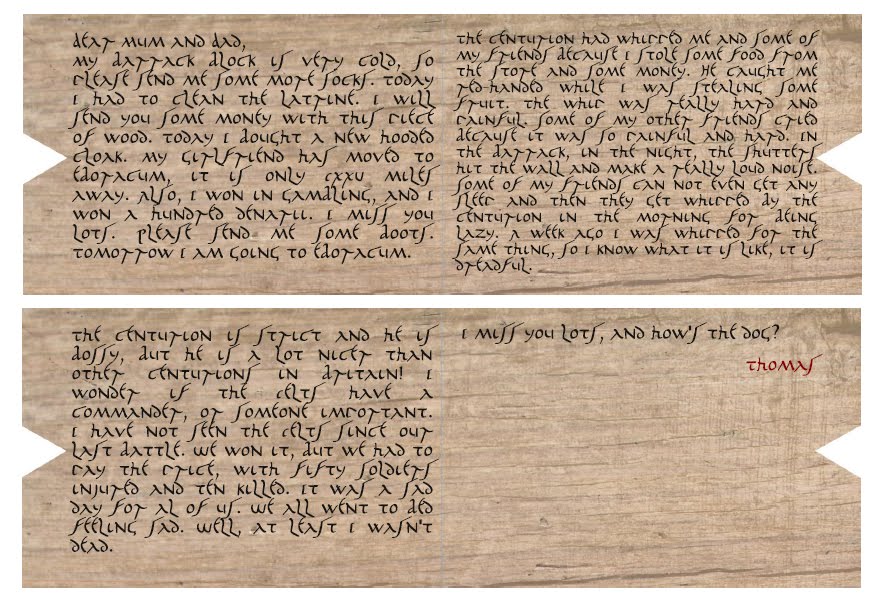 Dear Mum and Dad,
My barrack block is very cold, so
please send me some more socks. Today
I had to clean the latrine. I will
send you some money with this piece
of wood. Today I bought a new hooded
cloak. My girlfriend has moved to
Eboracum, it is only cxxv miles
away. Also, I won in gambling, and I
won a hundred denarii. I miss you
lots. Please send me some boots.
Tomorrow I am going to Eboracum.
The centurion had whipped me and some of
my friends because I stole some food from
the store and some money. He caught me
red-handed while I was stealing some
fruit. The whip was really hard and
painful. Some of my other friends cried
because it was so painful and hard. In
the barrack, in the night, the shutters
hit the wall and make a really loud noise.
Some of my friends can not even get any
sleep and then they get whipped by the
centurion in the morning for being
lazy. A week ago I was whipped for the
same thing, so I know what it is like, it is
dreadful.
The centurion is strict and he is
bossy, but he is a lot nicer than
other centurions in Britain! I
wonder if the celts have a
commander, or someone important.
I have not seen the celts since our
last battle. We won it, but we had to
pay the price, with fifty soldiers
injured and ten killed. It was a sad
day for al of us. We all went to bed
feeling sad. Well, at least I wasn't
dead.
I miss you lots, and how's the dog?
Thomas